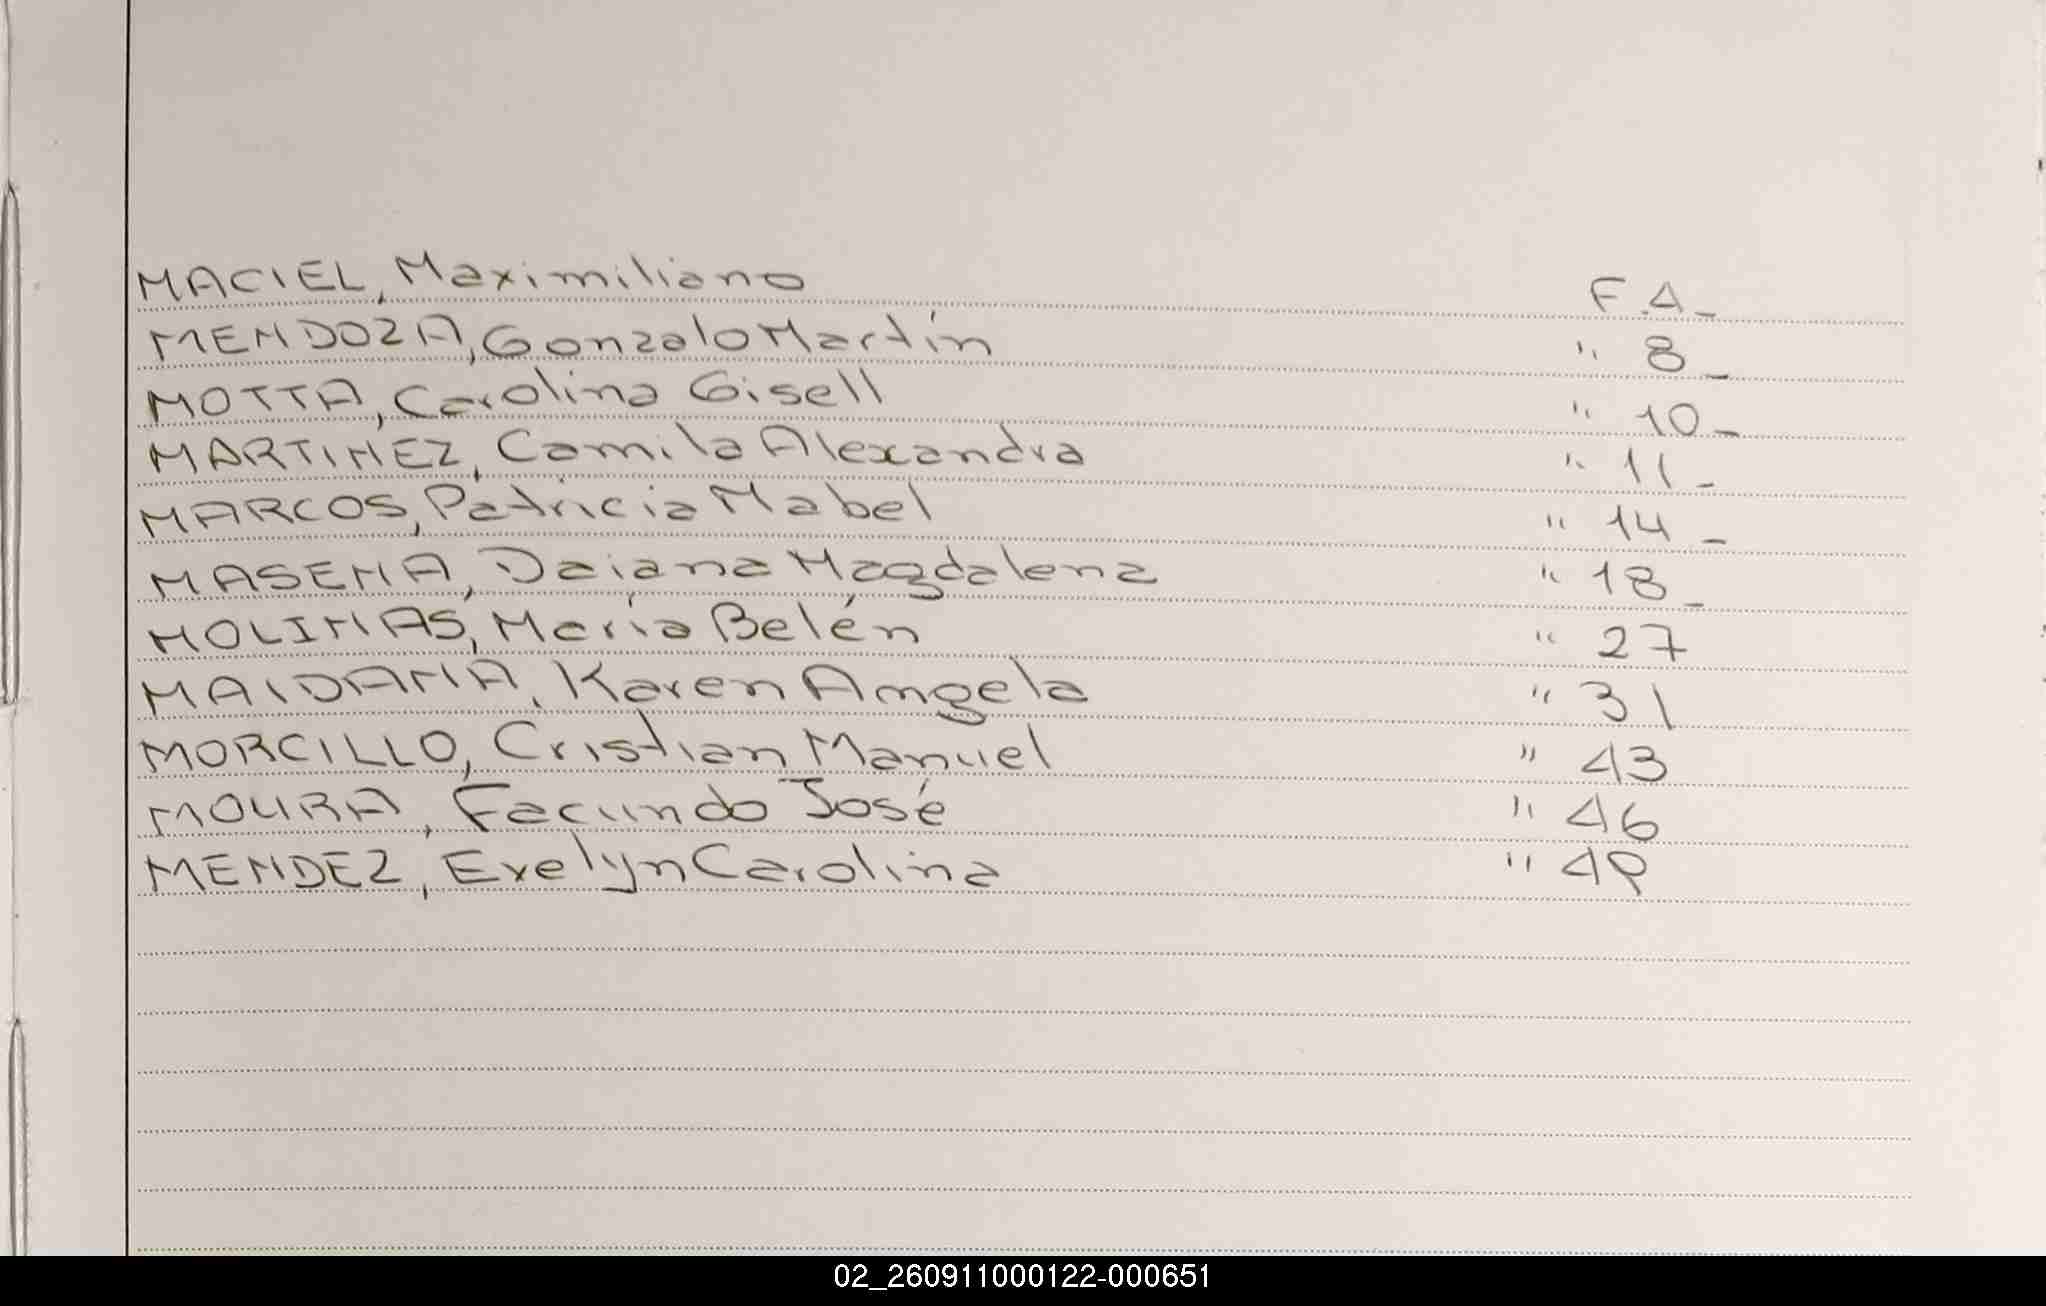 MACIEL, Maximiliano F.4_
MENDOZA, Gonzalo Martín " 8_
MOTTA, Carolina Gisell " 10_
MARTINEZ, Camila Alexandra " 11_
MARCOS, Patricia Mabel " 14_
MASENA, Daiana Magdalena " 18_
MOLINAS, María Belén " 27
MAIDANA, Karen Angela " 31
MORCILLO, Cristian Manuel " 43
MOURA, Facundo José " 46
MENDEZ, Evelyn Carolina " 49
02_260911000122-000651